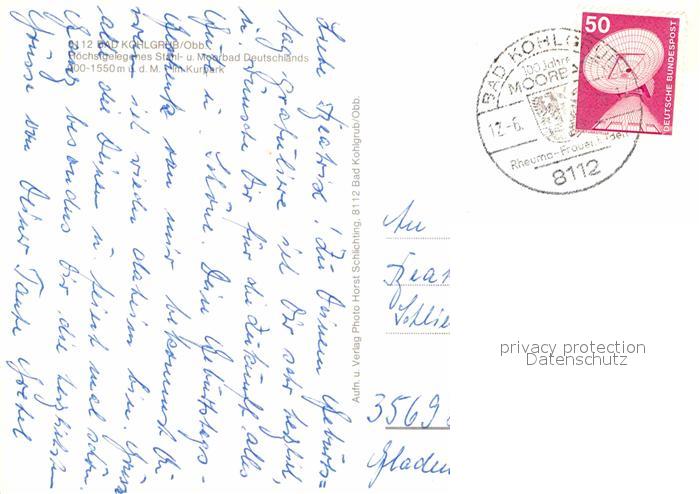 8112 BAD KOHLGRUB/Obb.
Höchstgelegenes Stahl- u. Moorbad Deutschlands
900-1550 m ü. d. M. - Im Kurpark
Liebe Beatrix! Zu Deinem Geburts=
tag gratuliere ich Dir sehr herzlich,
u. wünsche Dir für die Zukunft alles
Gute u. Schöne. Dein Geburtstags-
geschenk von mir bekommst Du
wenn ich wieder daheim bin. Grüss
alle die Deinen u. feiert mal schön.
Ganz besonders Dir die herzlichsten
Grüsse von Deiner Tante
Aufn. u. Verlag Photo Horst Schlichting, 8112 Bad Kohlgrub/Obb.
BAD KOHLGRUB
100 Jahre
MOORBAD
12.-6.
Rheuma-Frauenleiden
8112
50
DEUTSCHE BUNDESPOST
An
Beat
Schlie
3569
Gladen
privacy protection
Datenschutz